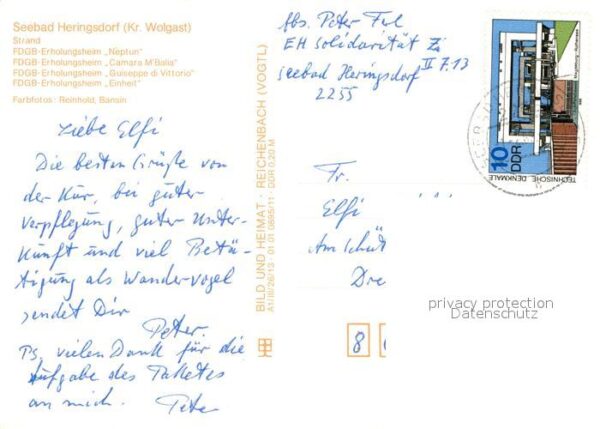 Seebad Heringsdorf (Kr. Wolgast)
Strand
FDGB-Erholungsheim „Neptun"
FDGB-Erholungsheim „Camara M'Balia"
FDGB-Erholungsheim „Guiseppe di Vittorio"
FDGB-Erholungsheim „Einheit"
Farbfotos: Reinhold, Bansin
Liebe Elfi
Die besten Grüße von
der Kur, bei guter
Verpflegung, guter Unter-
kunft und viel Betä-
tigung als Wandervogel
sendet Dir
Peter.
PS. vielen Dank für die
Aufgabe des Paketes
an mich. Peter
BILD UND HEIMAT · REICHENBACH (VOGTL)
A1/III/26/13 01 01 0695/11 · DDR 0,20 M
Abs. Peter
EH Solidarität Zi
II 7.13
Seebad Heringsdorf
2255
10
DDR
TECHNISCHE DENKMALE
Fr.
Elfi
Am Schüt
Dre
8
privacy protection
Datenschutz